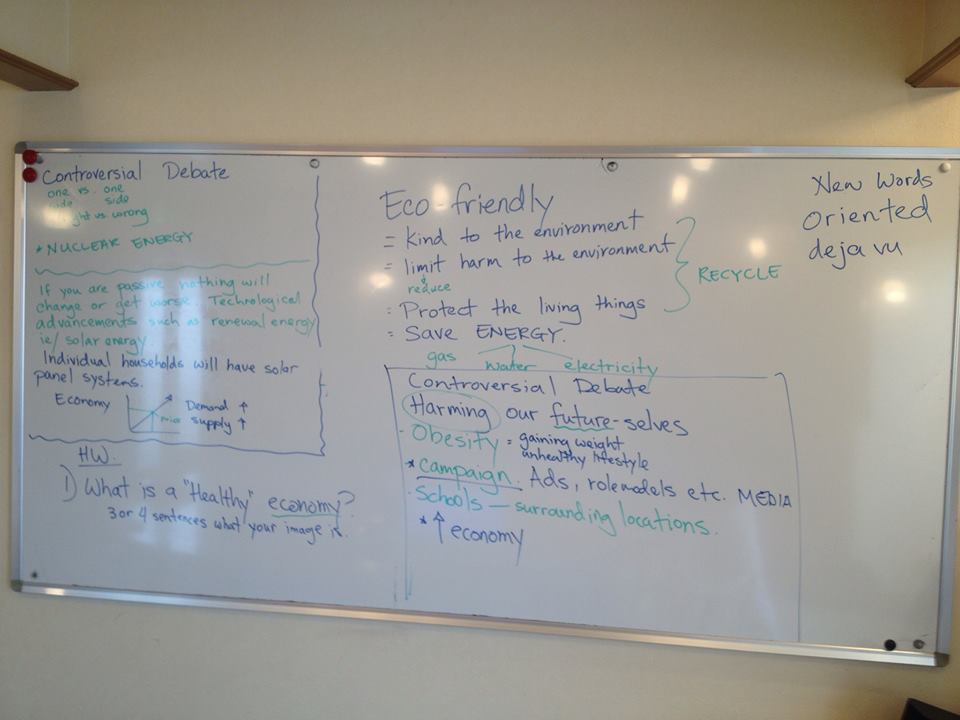 Controversial Debate
one vs. one
side side
right vs. wrong
* NUCLEAR ENERGY
If you are passive nothing will
change or get worse. Technological
advancements such as renewal energy
ie/ solar energy
Individual households will have solar
panel systems.
Economy
Demand ↑
supply ↑
HW.
1) What is a "Healthy" economy?
3 or 4 sentences what your image is.
Eco-friendly
= Kind to the environment
= limit harm to the environment
reduce
= Protect the living things
= Save ENERGY.
RECYCLE
gas water electricity
Controversial Debate
Harming our future-selves
· Obesity = gaining weight
unhealthy lifestyle
* Campaign. Ads, rolemodels etc. MEDIA
· Schools — surrounding locations.
* ↑ economy
New Words
Oriented
deja vu